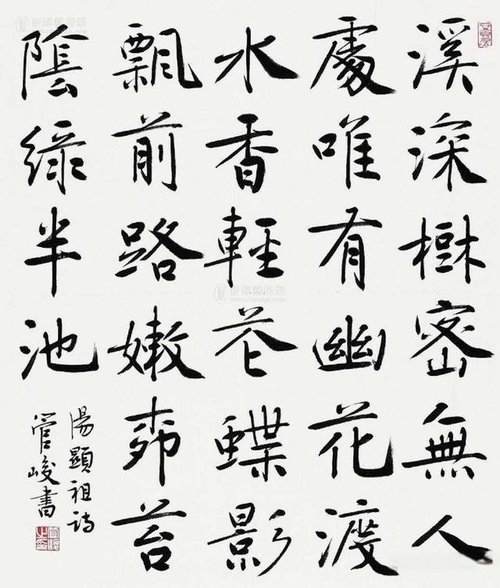 溪深樹密無人
處唯有幽花渡
水香輕花蝶影
飄前路嫩苔
陰綠半池
湯顯祖詩
管峻書